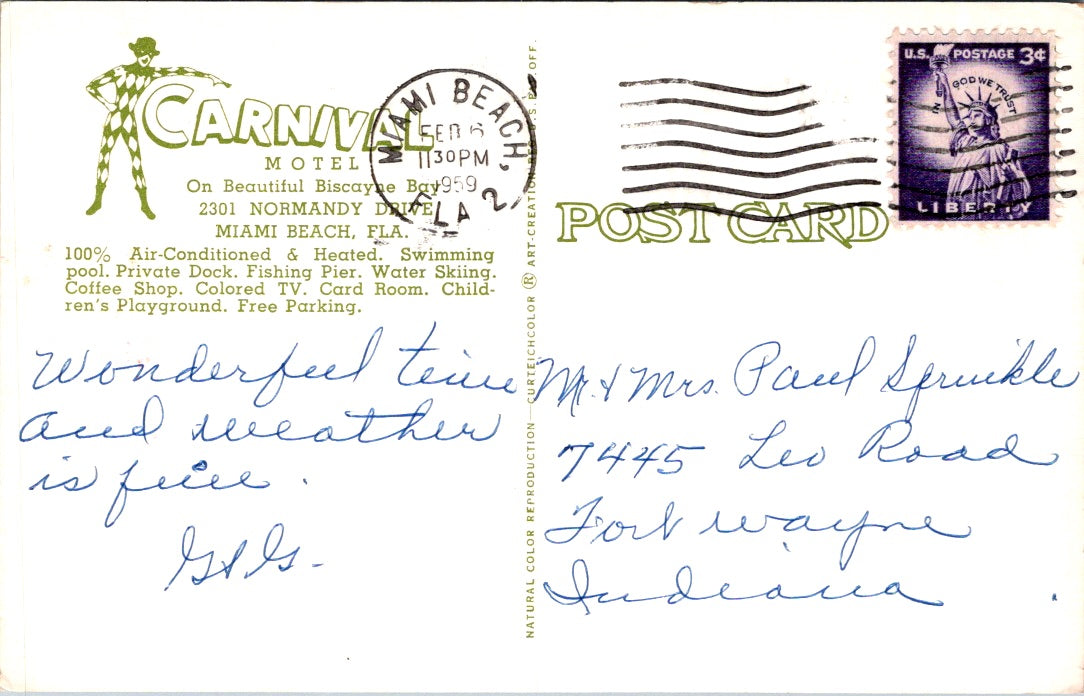 CARNIVAL
MOTEL
On Beautiful Biscayne Bay
2301 NORMANDY DRIVE
MIAMI BEACH, FLA.
100% Air-Conditioned & Heated. Swimming
pool. Private Dock. Fishing Pier. Water Skiing.
Coffee Shop. Colored TV. Card Room. Child-
ren's Playground. Free Parking.
MIAMI BEACH,
FEB 6
1130PM
1959
FLA 2
Wonderful time
and weather
is fine.
G & G.
NATURAL COLOR REPRODUCTION—CURTEICHCOLOR ® ART-CREATION
POST CARD
U.S. POSTAGE 3¢
IN GOD WE TRUST
LIBERTY
Mr. & Mrs. Paul Sprinkle
7445 Leo Road
Fort Wayne
Indiana